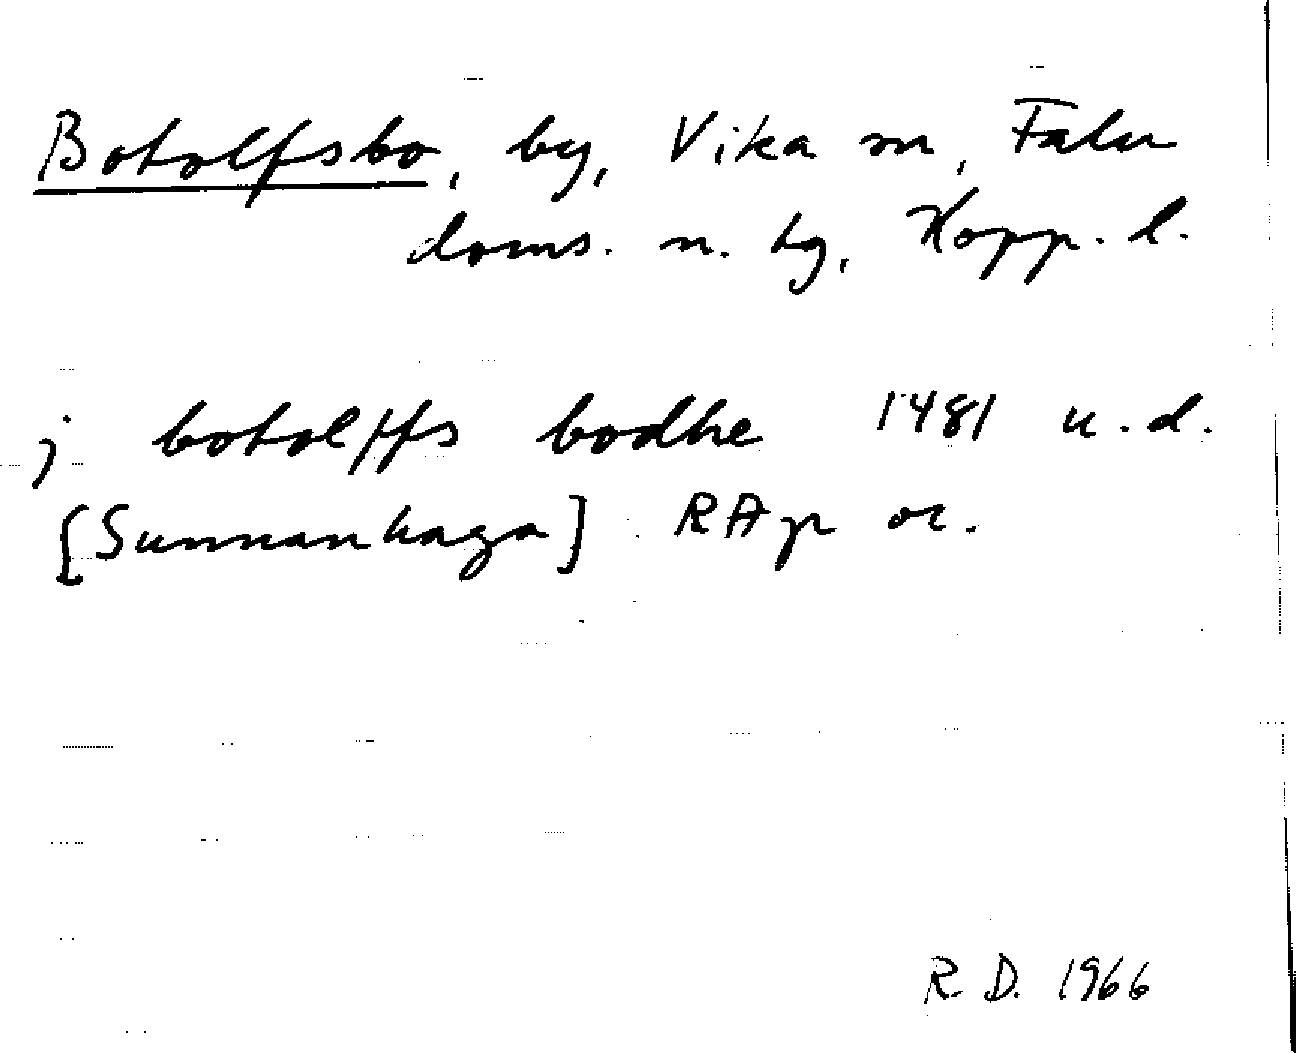 Botolfsbo, by, Vika sn, Falu
doms. n. tg, Kopp. l.
j botolffs bodhe 1481 u.d.
[Sunnanhaga] RAp or.
R. D. 1966